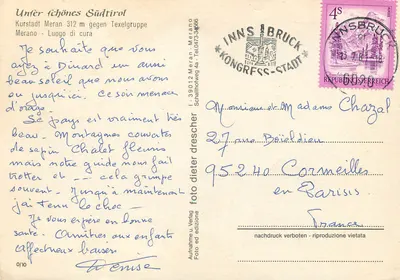 Unser schönes Südtirol
Kurstadt Meran 312 m gegen Texelgruppe
Merano - Luogo di cura
Je souhaite que vous
ayez à Dinard un aussi
beau soleil que nous avons
eu jusqu'ici. Ce soir menace
d'orage.
Le pays est vraiment très
beau. Montagnes couvertes
de sapin Chalet fleuris
mais notre guide nous fait
trotter et cela grimpe
souvent. Jusqu'à maintenant
j'ai tenu le choc
Je vous espère en bonne
santé. Amitiés aux enfants
affectueux baisers
Denise
0/10
Aufnahme u. Verlag
Foto ed edizione
foto dieter drescher
I - 39012 Meran - Merano
INNSBRUCK
*KONGRESS-STADT*
4S
REPUBLIK
INNSBRUCK
6020
Monsieur et Madame Chazal
27 rue Boieldieu
95240 Cormeilles
en Parisis
France
nachdruck verboten - riproduzione vietata